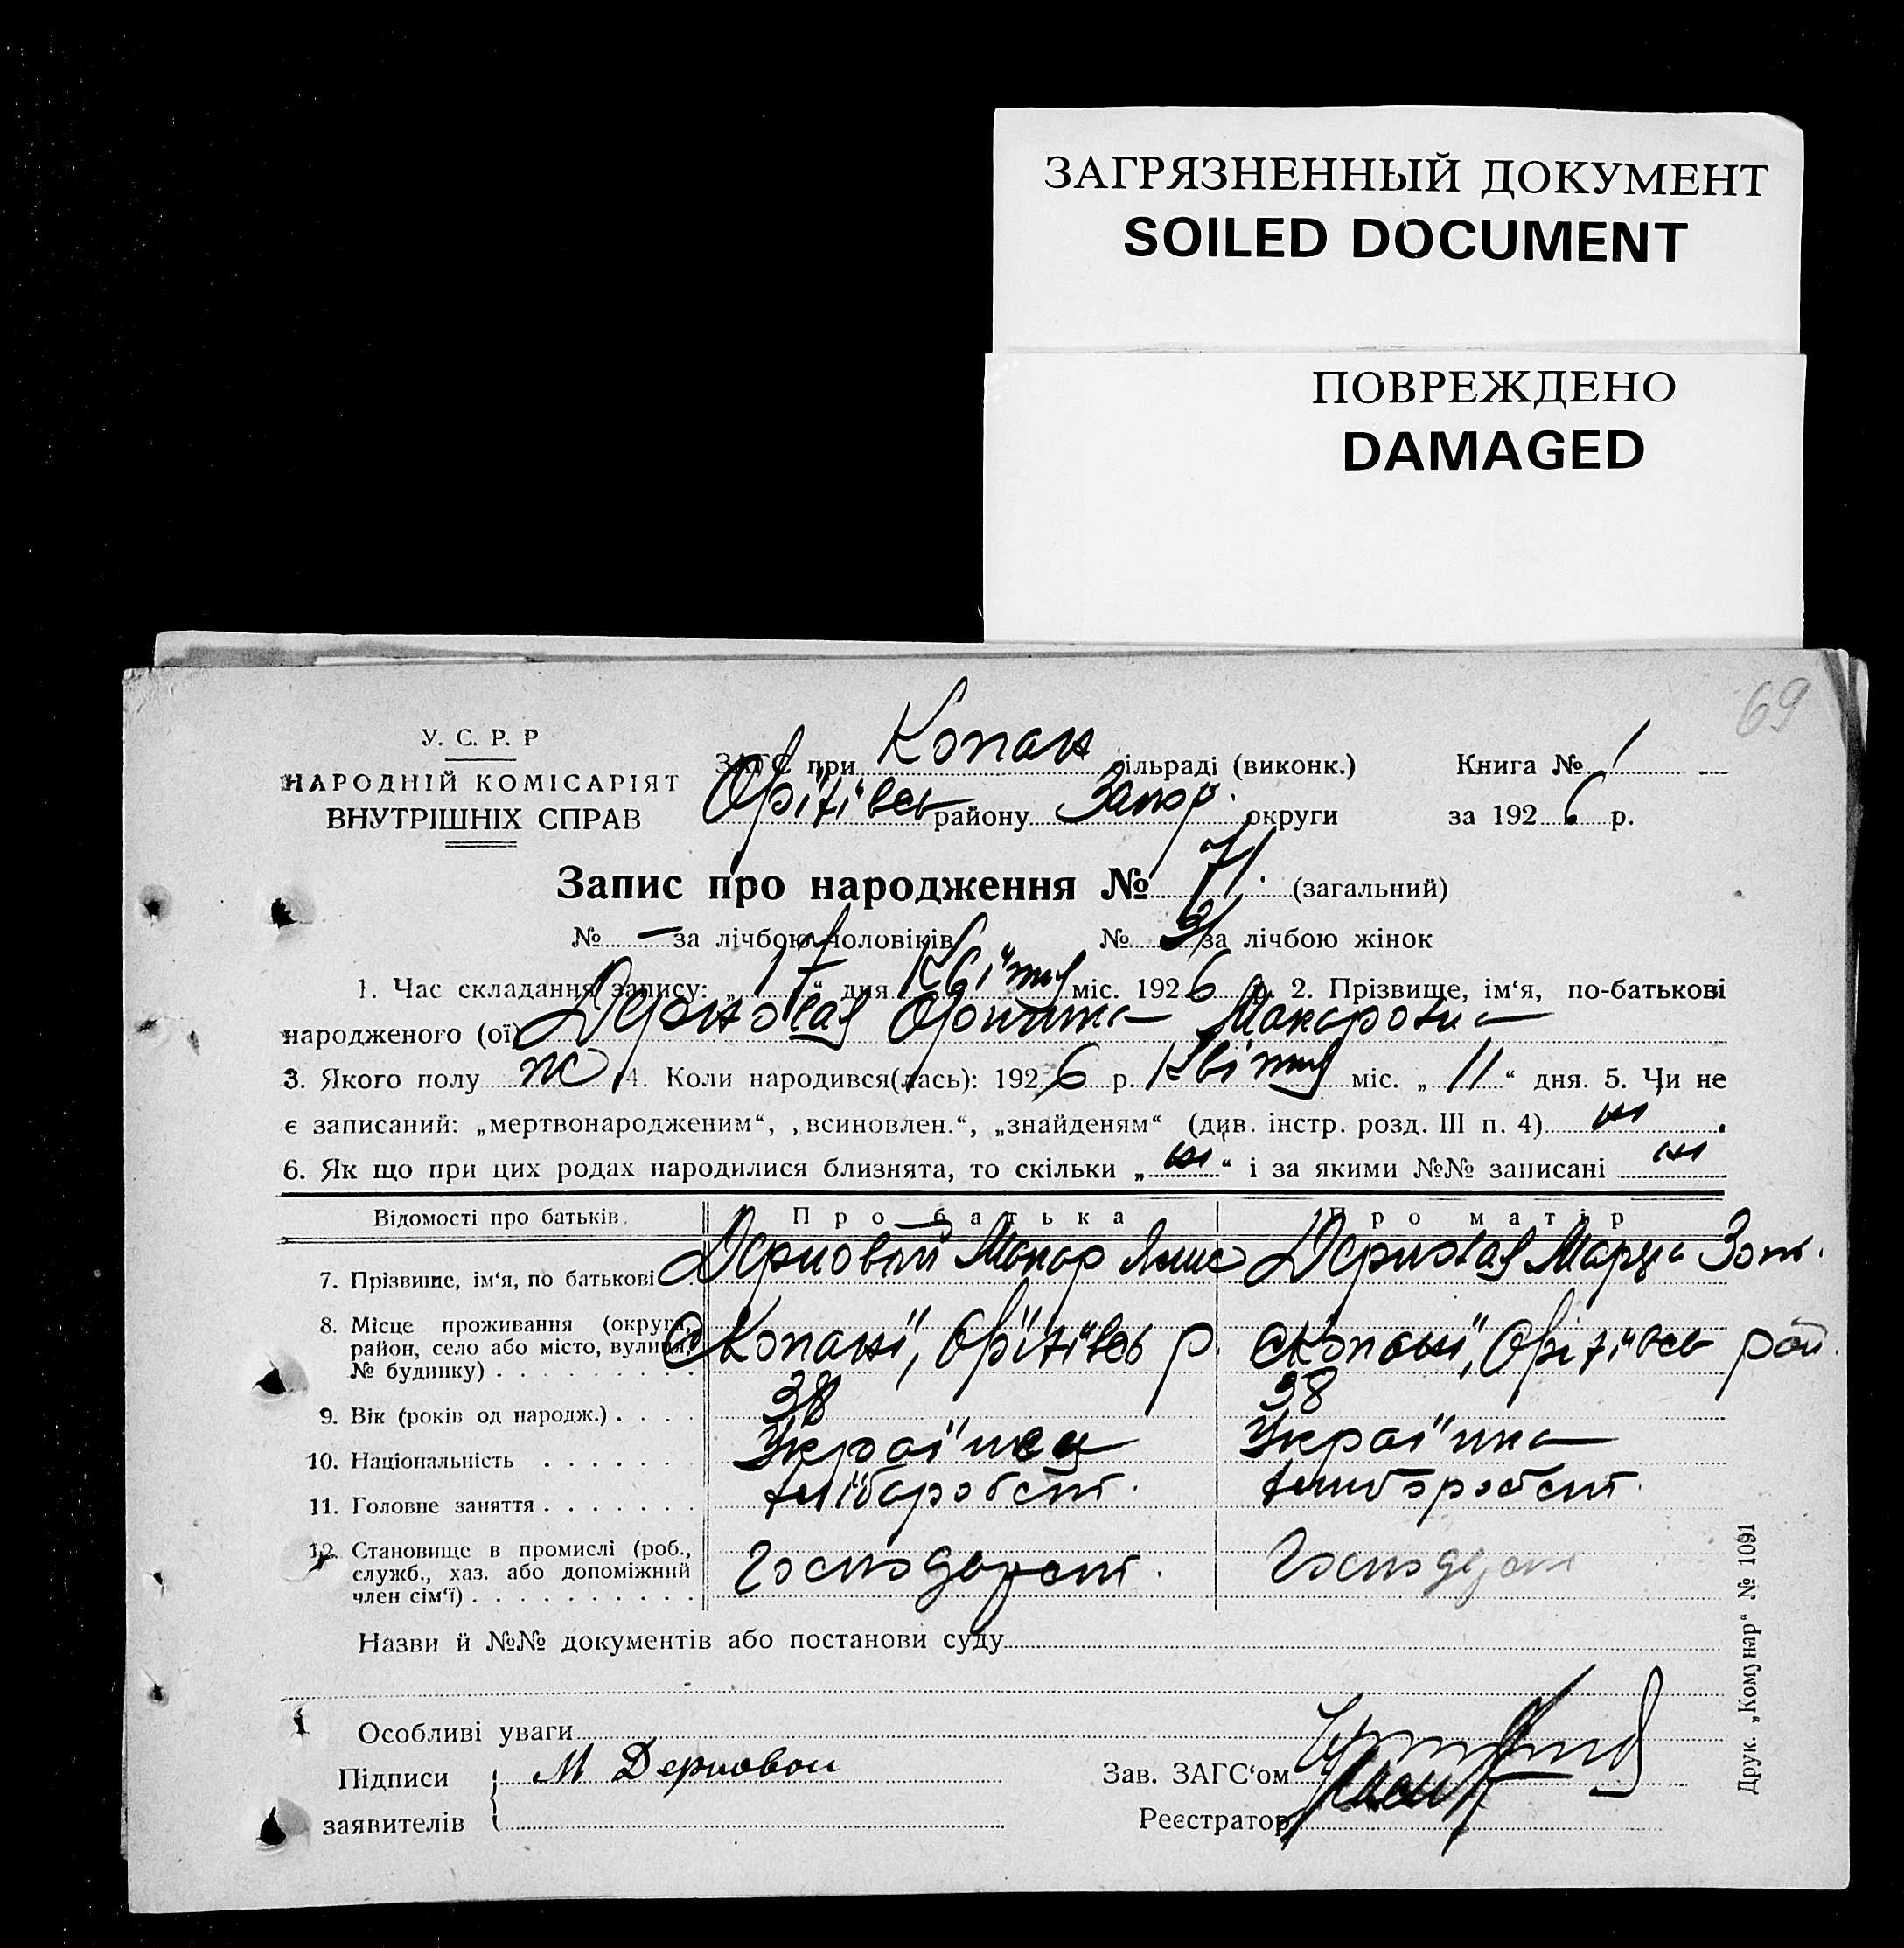 ЗАГРЯЗНЕННЫЙ ДОКУМЕНТ
SOILED DOCUMENT
ПОВРЕЖДЕНО
DAMAGED
69
У. С. Р. Р
НАРОДНІЙ КОМІСАРІЯТ
ВНУТРІШНІХ СПРАВ
ЗАГС при Копан сільраді (виконк.) Книга № 1
району Запор. округи за 1926 р.
Запис про народження № 71. (загальний)
№ — за лічбою чоловіків № за лічбою жінок
1. Час складання запису: „17“ дня Квітня міс. 1926 р. 2. Прізвище, ім‘я, по-батькові
народженого (ої) Дерновая Макаровна
3. Якого полу ж 4. Коли народився(лась): 1926 р. Квітня міс. „11“ дня. 5. Чи не
є записаний: „мертвонародженим“, „всиновлен.“, „знайденям“ (див. інстр. розд. III п. 4) ні.
6. Як що при цих родах народилися близнята, то скільки „ні“ і за якими №№ записані ні
Відомості про батьків. Про батька Про матір
7. Прізвище, ім‘я, по батькові Дерновой Макар Дерновая
8. Місце проживання (округа, район, село або місто, вулиця, № будинку) с Копані, р. с Копані, рай.
9. Вік (років од народж.) 38 38
10. Національність Україней Україинка
11. Головне заняття
12. Становище в промислі (роб., служб., хаз. або допоміжний член сім‘ї)
Назви й №№ документів або постанови суду
Особливі уваги
Підписи заявителів М Дерновой
Зав. ЗАГС‘ом
Реєстратор
Друк. „Комунар“ № 1091